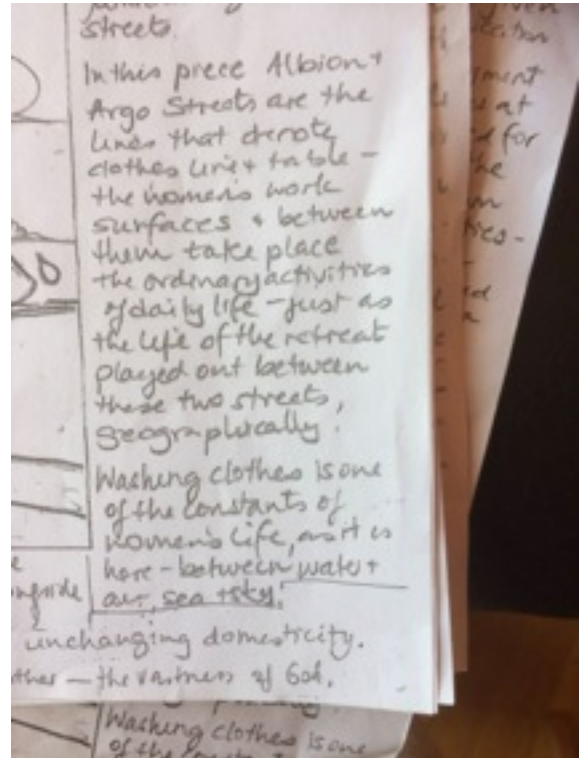 streets.
In this piece Albion +
Argo Streets are the
lines that denote
clothes line + table –
the women's work
surfaces + between
them take place
the ordinary activities
of daily life – just as
the life of the retreat
played out between
these two streets,
geographically.
Washing clothes is one
of the constants of
women's life, as it is
here – between water +
air, sea + sky.
unchanging domesticity.
– the vastness of God.
Washing clothes is one
of the